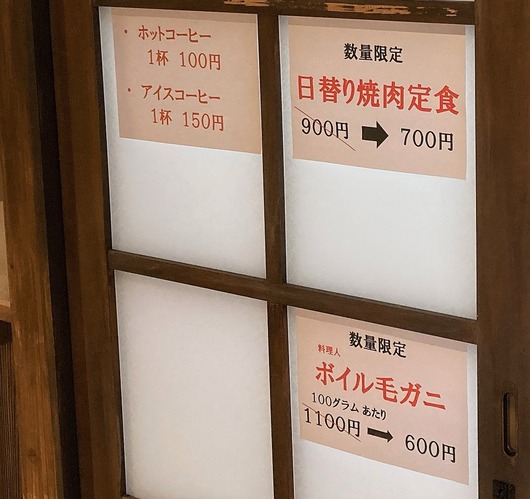 ・ホットコーヒー
1杯 100円
・アイスコーヒー
1杯 150円
数量限定
日替り焼肉定食
900円 ➡ 700円
数量限定
料理人
ボイル毛ガニ
100グラム あたり
1100円 ➡ 600円